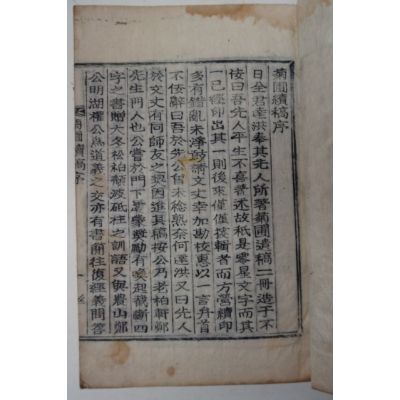 菊圃續稿序
日全君奎洪奉其先人所著菊圃遺稿二冊造于不
佞曰吾先人平生不喜著述故秖是零星文字而其
一已經印出其一則後來僅僅裒輯者而方營續印
多有錯亂未淨敢請文丈幸加勘校惠以一言弁首
不佞辭曰吾於公曾未稔熟奈何遂洪又曰先人
於文丈有同師友之契因進其稿按公乃老柏軒鄭
先生門人也公嘗於門下最蒙奬勵有喚起截斷四
字之書贈大冬松柏頹波砥柱之訓語又與農山鄭
公明湖權公爲道義之交亦有書簡往復經義問答
菊圃續稿序